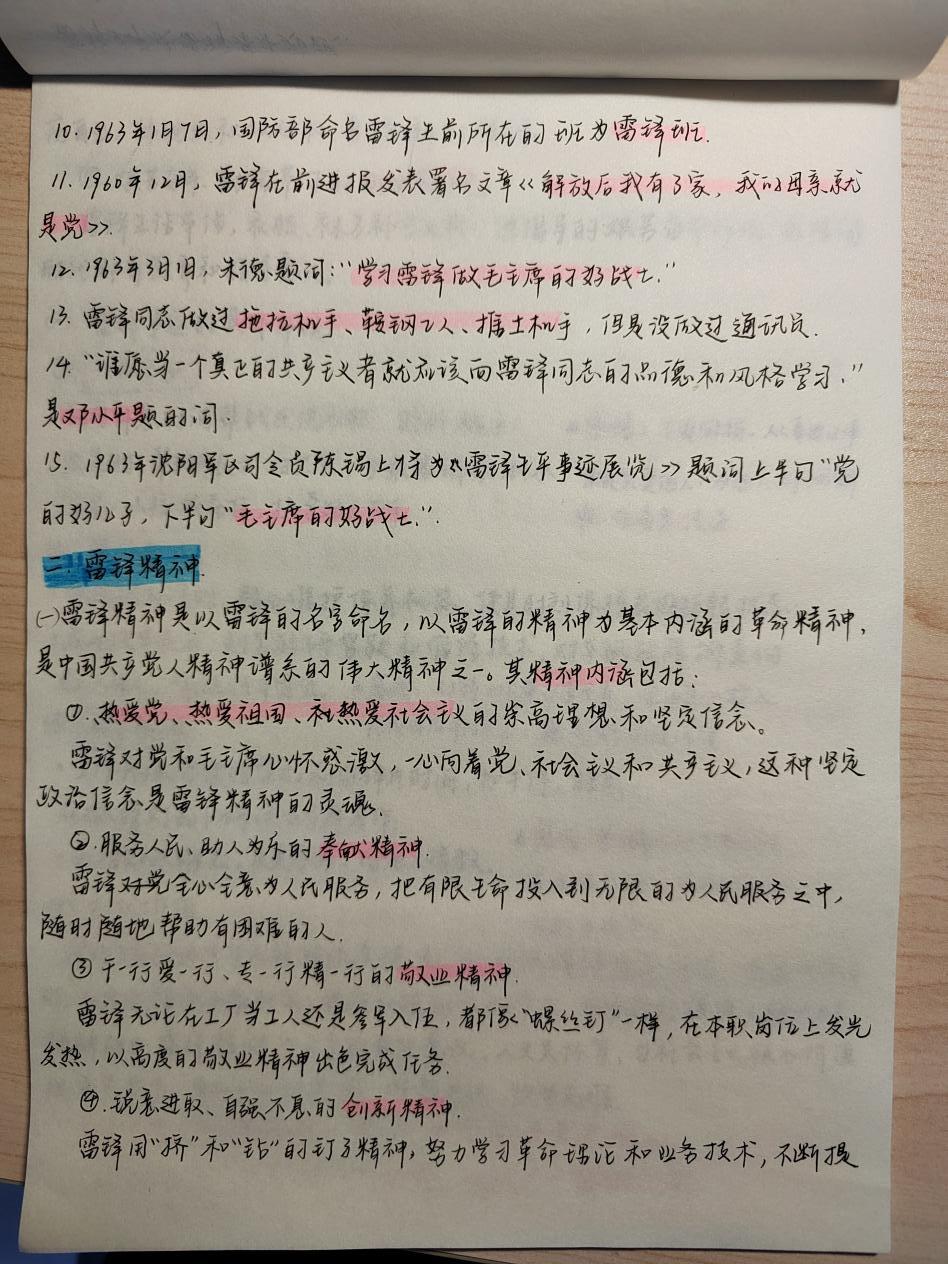 10. 1963年1月7日，国防部命名雷锋生前所在的班为雷锋班.
11. 1960年12月，雷锋在前进报发表署名文章<<解放后我有了家，我的母亲就
是党>>.
12. 1963年3月1日，朱德题词：“学习雷锋做毛主席的好战士.”
13. 雷锋同志做过拖拉机手、鞍钢工人、推土机手，但是没做过通讯员.
14. “谁愿当一个真正的共产主义者就应该向雷锋同志的品德和风格学习.”
是邓小平题的词.
15. 1963年沈阳军区司令员陈锡上将为<<雷锋生平事迹展览>>题词上半句“党
的好儿子，下半句“毛主席的好战士.”.
二. 雷锋精神.
(一)雷锋精神是以雷锋的名字命名，以雷锋的精神为基本内涵的革命精神，
是中国共产党人精神谱系的伟大精神之一。其精神内涵包括：
①.热爱党、热爱祖国、社热爱社会主义的崇高理想和坚定信念。
雷锋对党和毛主席心怀感激，一心向着党、社会主义和共产主义，这种坚定
政治信念是雷锋精神的灵魂.
②.服务人民、助人为乐的奉献精神.
雷锋对党全心全意为人民服务，把有限生命投入到无限的为人民服务之中，
随时随地帮助有困难的人.
③干一行爱一行、专一行精一行的敬业精神.
雷锋无论在工厂当工人还是参军入伍，都像“螺丝钉”一样，在本职岗位上发光
发热，以高度的敬业精神出色完成任务.
④.锐意进取、自强不息的创新精神.
雷锋用“挤”和“钻”的钉子精神，努力学习革命理论和业务技术，不断提